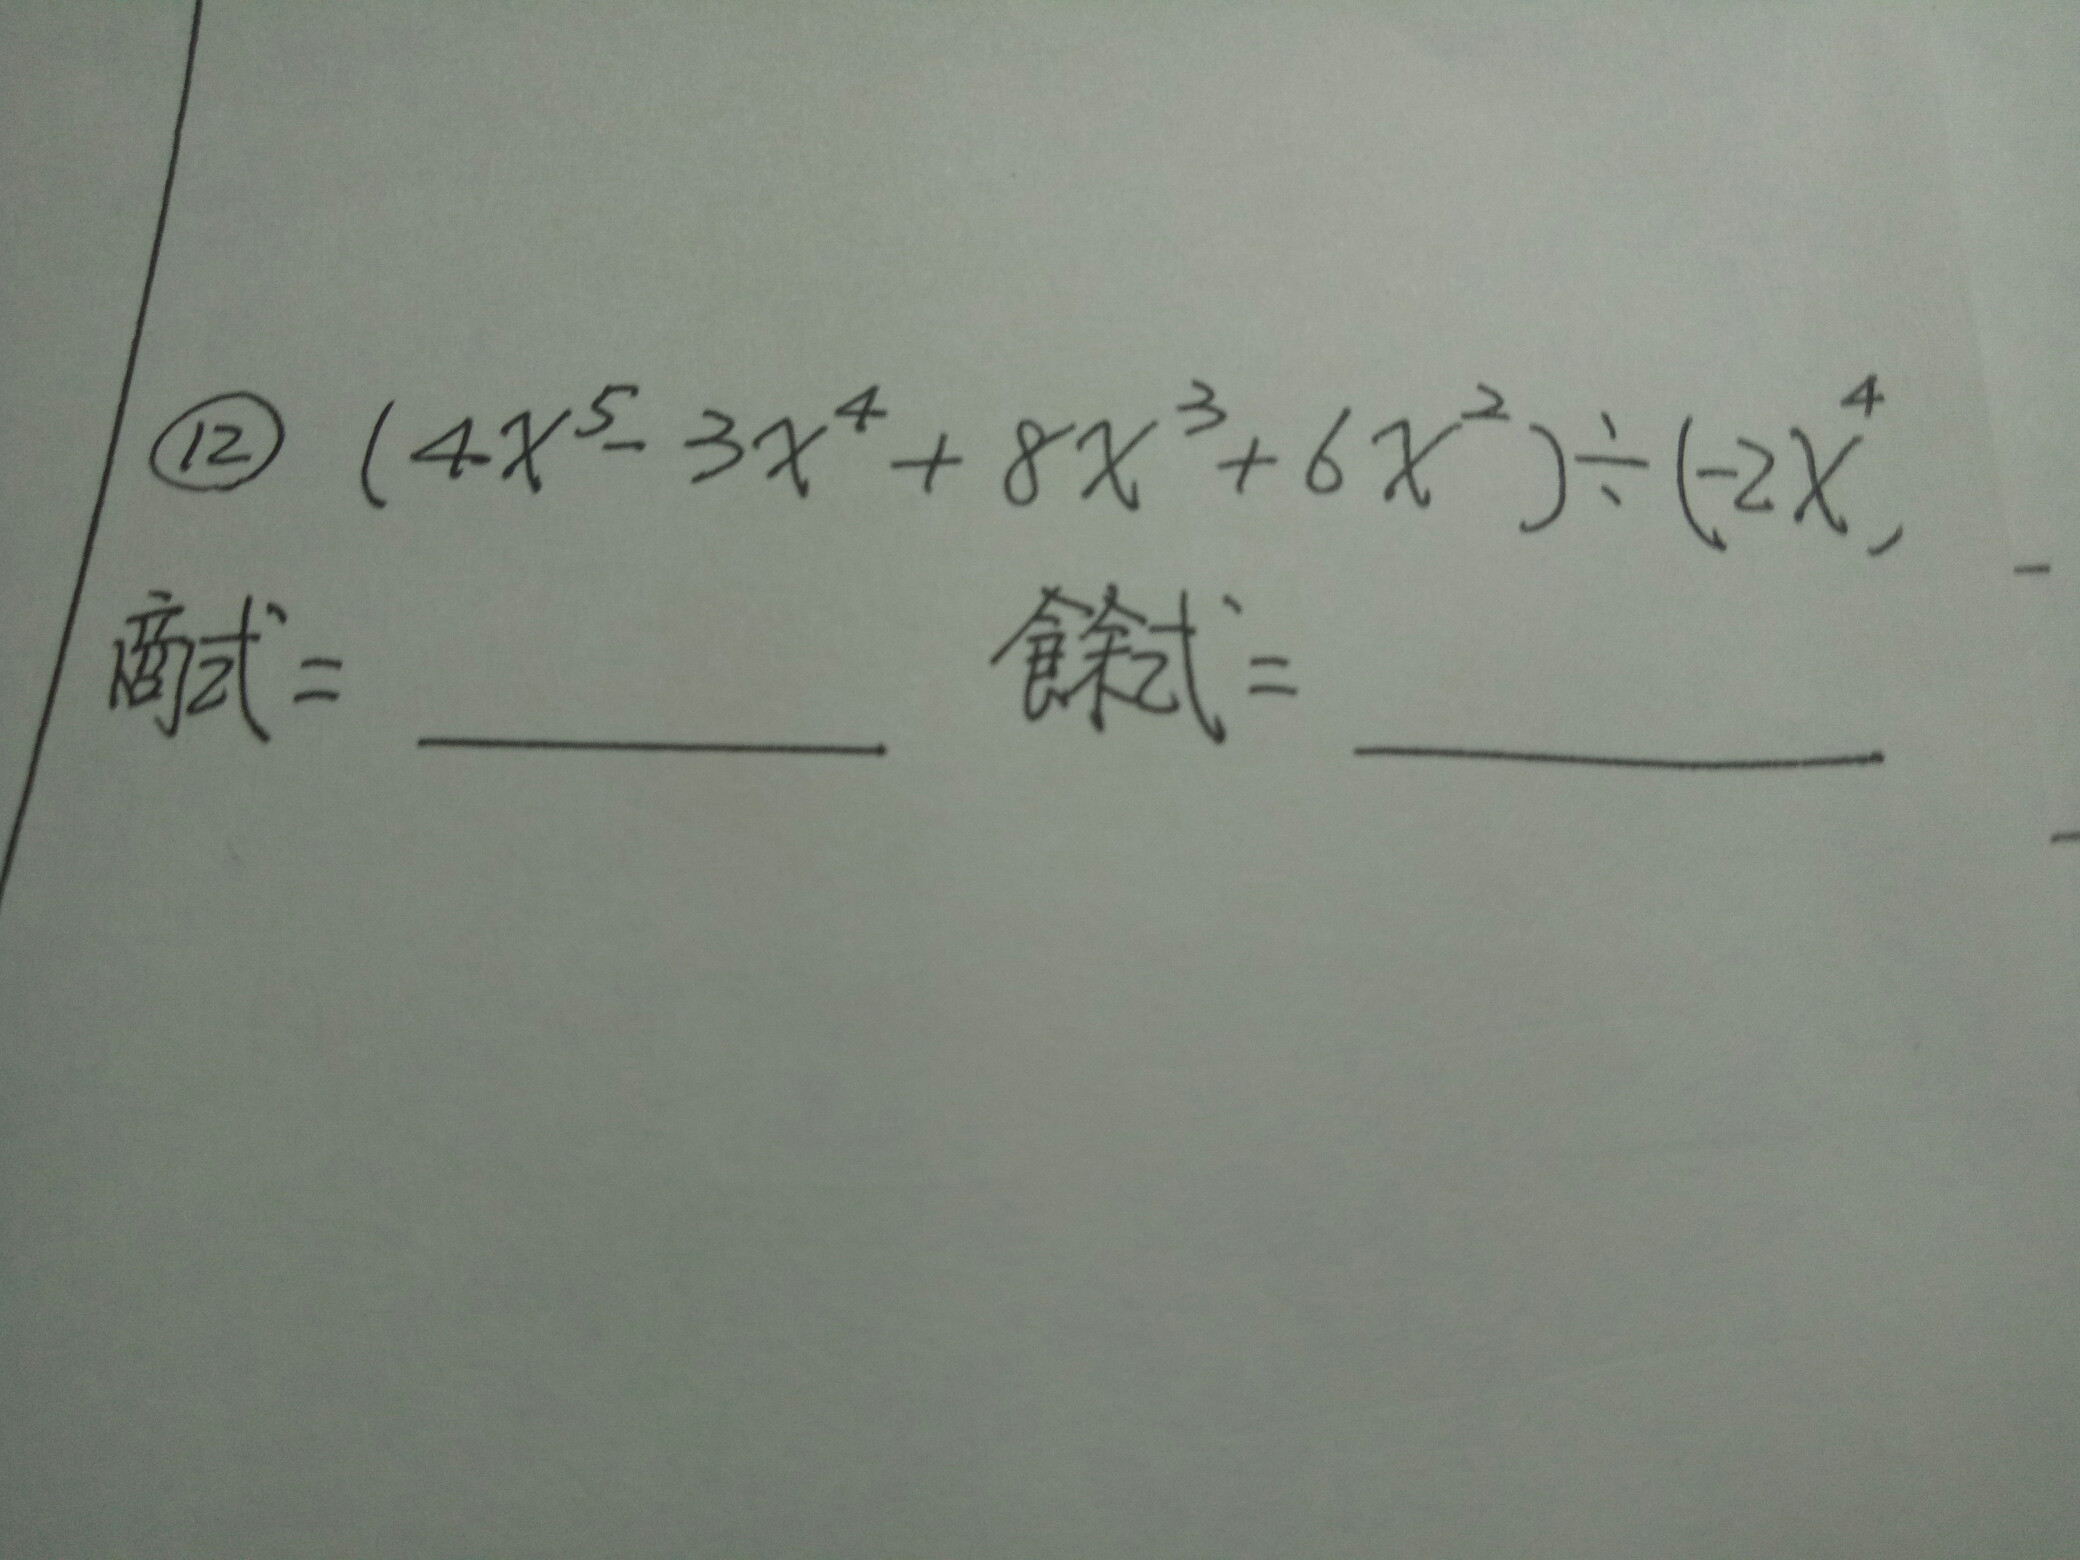 ⑫ (4x⁵-3x⁴+8x³+6x²)÷(-2x⁴)
商式= ______ 餘式= ______